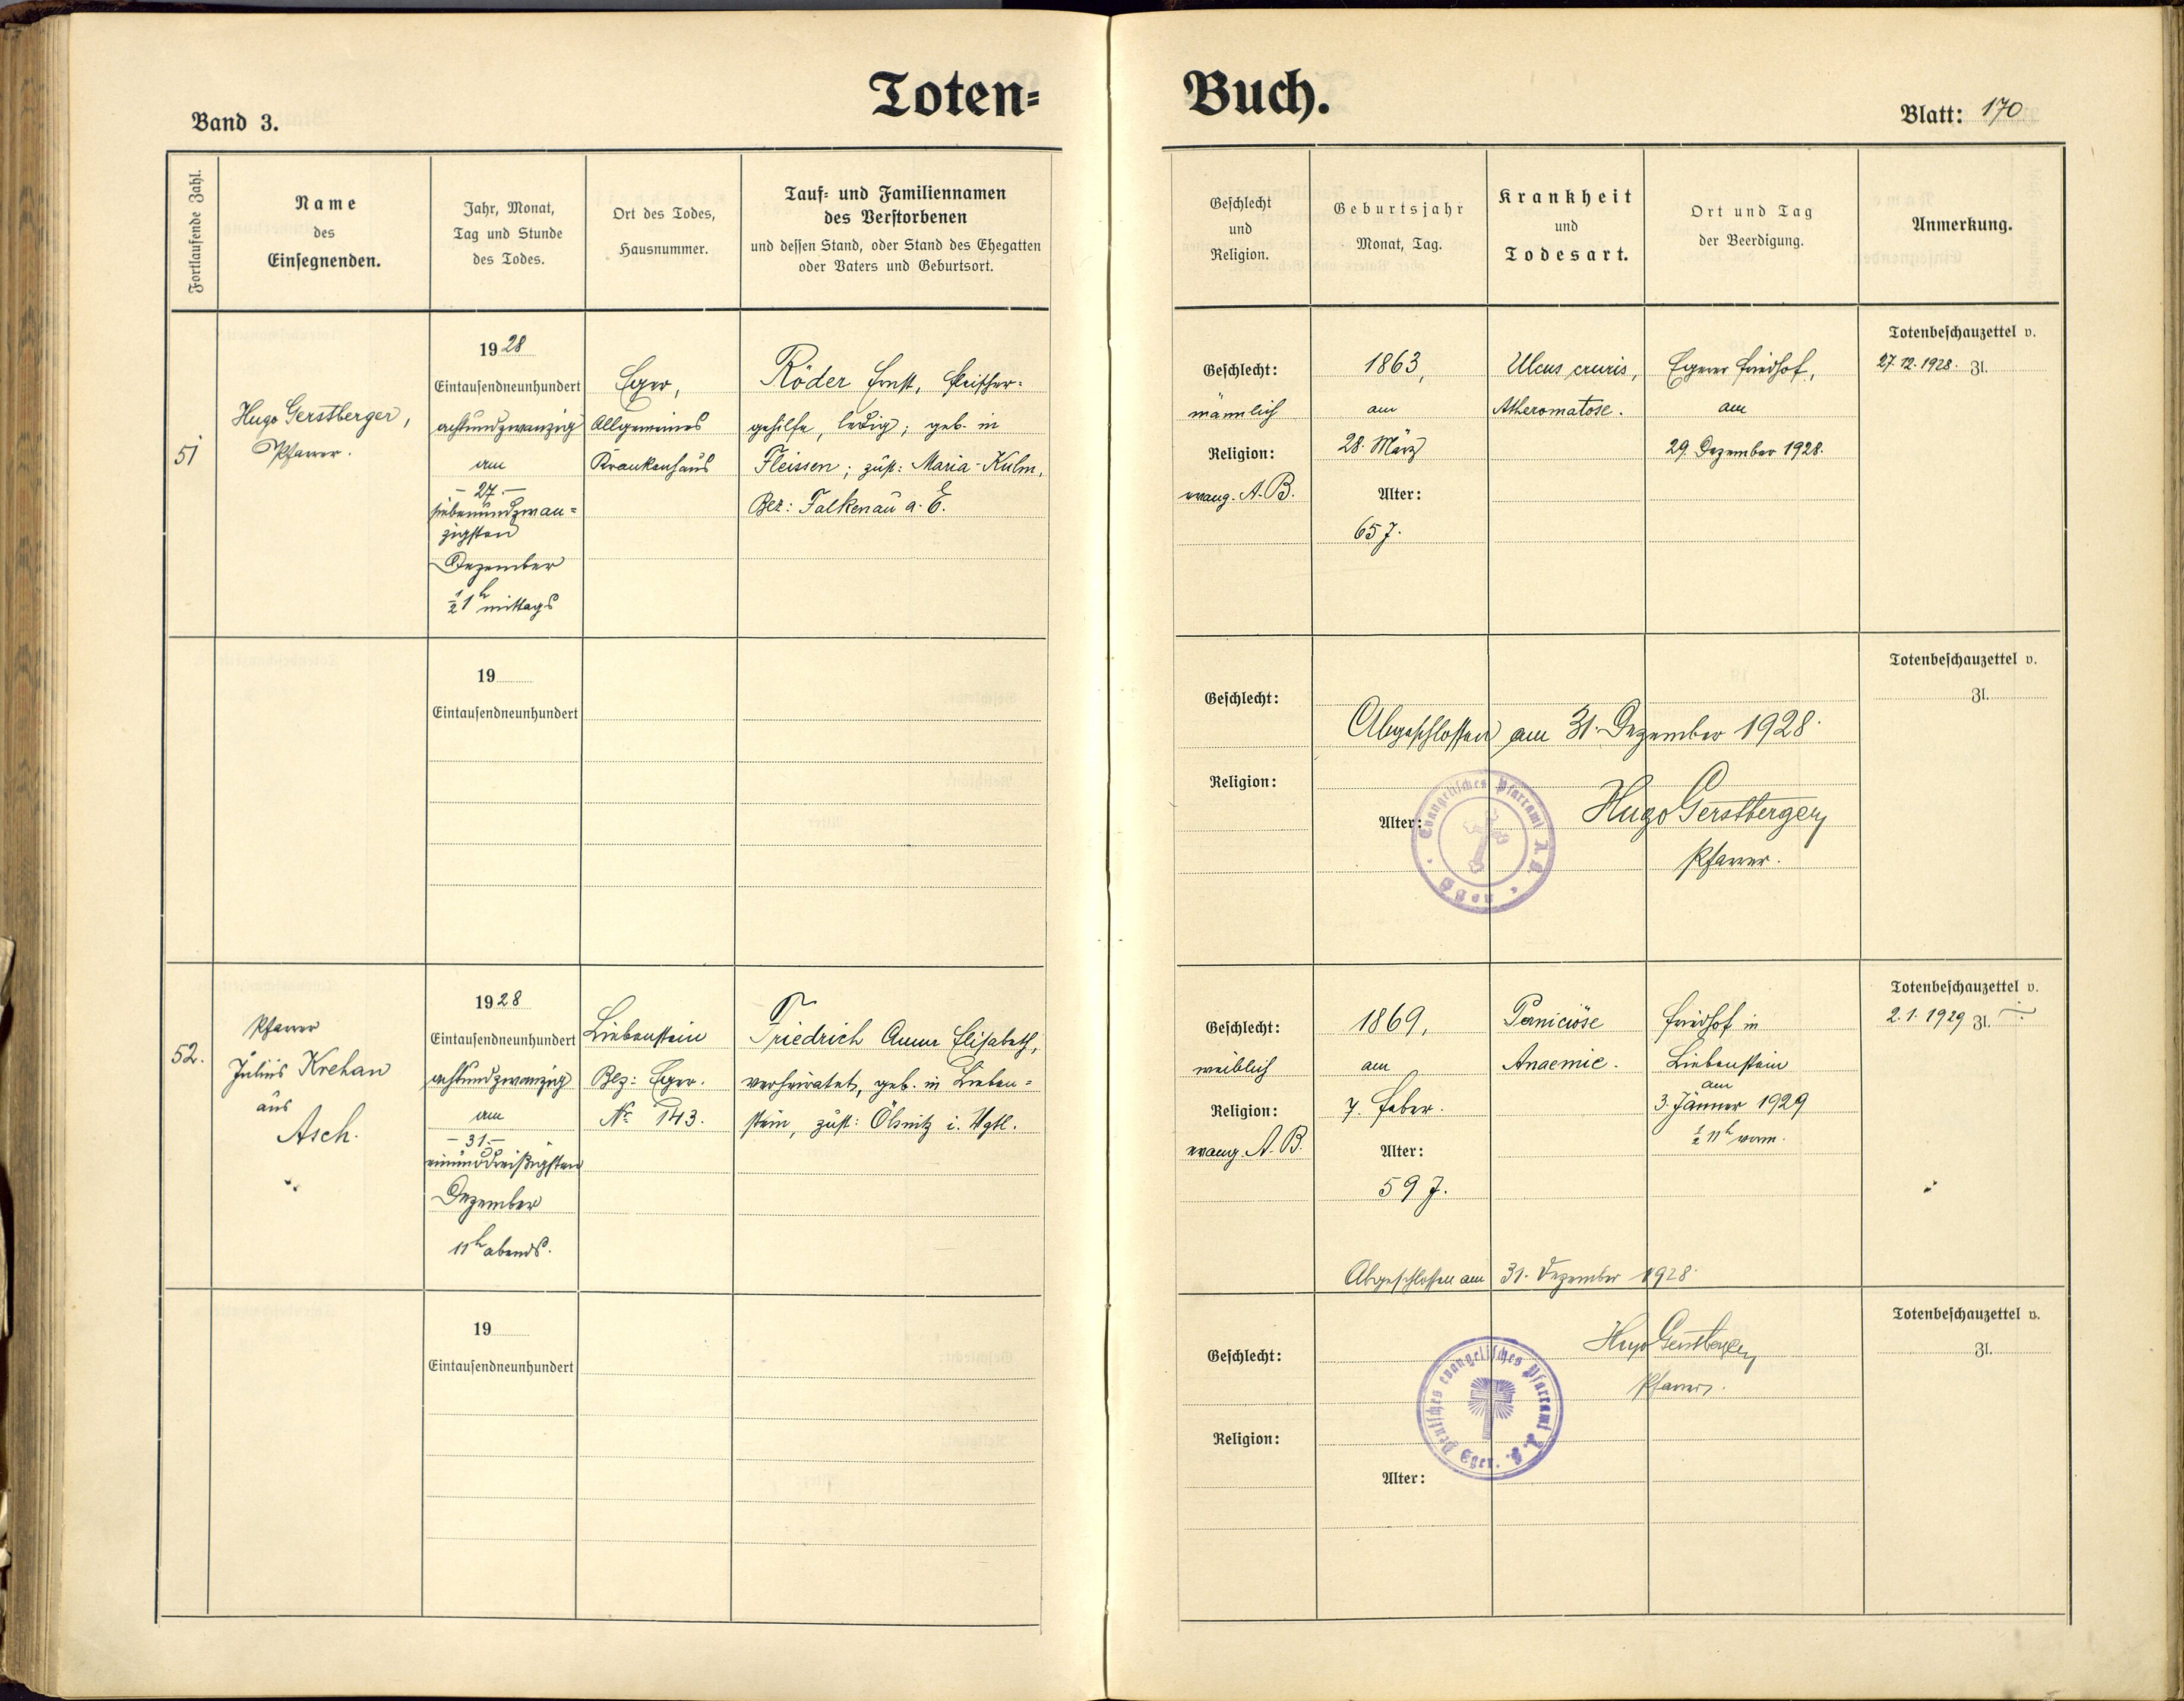 Toten=
Buch.
Band 3.
Blatt: 170
Fortlaufende Zahl.
Name
des
Einsegnenden.
Jahr, Monat,
Tag und Stunde
des Todes.
Ort des Todes,
Hausnummer.
Tauf- und Familiennamen
des Verstorbenen
und dessen Stand, oder Stand des Ehegatten
oder Vaters und Geburtsort.
Geschlecht
und
Religion.
Geburtsjahr
Monat, Tag.
Krankheit
und
Todesart.
Ort und Tag
der Beerdigung.
Anmerkung.
51
Hugo Gerstberger,
Pfarrer.
1928
Eintausendneunhundert
achtundzwanzig
am
- 27. -
siebenundzwan=
zigsten
Dezember
½ 1 h mittags
Eger,
Allgemeines
Krankenhaus
Röder Ernst, Fleischer=
gehilfe, ledig; geb. in
Fleissen; zust: Maria-Kulm,
Bez: Falkenau a. E.
Geschlecht:
männlich
Religion:
evang. A. B.
1863,
am
28. März
Alter:
65 J.
Ulcus cruris,
Atheromatose.
Egerer Friedhof,
am
29. Dezember 1928.
Totenbeschauzettel v.
27.12.1928. Zl.
19
Eintausendneunhundert
Geschlecht:
Religion:
Alter:
Abgeschlossen am 31. Dezember 1928.
Hugo Gerstberger
Pfarrer.
Evangelisches Pfarramt A. B.
Eger
Totenbeschauzettel v.
Zl.
52.
Pfarrer
Julius Krehan
aus
Asch.
1928
Eintausendneunhundert
achtundzwanzig
am
- 31. -
einunddreißigsten
Dezember
11 h abends.
Liebenstein
Bez: Eger.
Nr. 143.
Friedrich Anna Elisabeth,
verheiratet, geb. in Lieben=
stein, zust: Ölsnitz i. Vgtl.
Geschlecht:
weiblich
Religion:
evang. A. B.
1869,
am
7. Feber.
Alter:
59 J.
Perniciöse
Anaemie.
Friedhof in
Liebenstein
am
3. Jänner 1929
½ 11 h vorm.
Totenbeschauzettel v.
2.1.1929 Zl.
Abgeschlossen am 31. Dezember 1928.
19
Eintausendneunhundert
Geschlecht:
Religion:
Alter:
Hugo Gerstberger
Pfarrer.
Deutsches evangelisches Pfarramt A. B.
Eger.
Totenbeschauzettel v.
Zl.